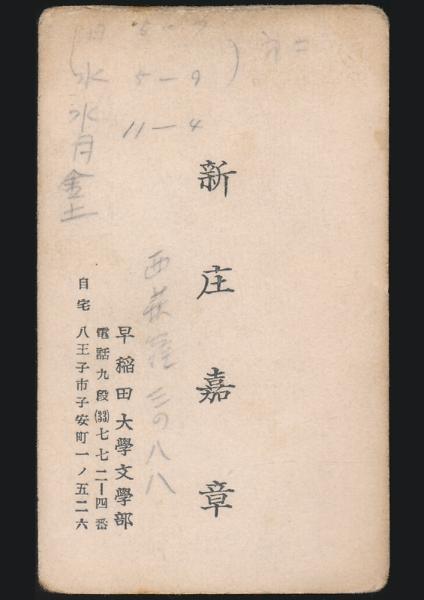 新庄嘉章
西荻窪三の八八
早稲田大學文學部
電話九段(33)七七二一四番
自宅 八王子市子安町一ノ五二六
水 5-9
11-4
水月金土